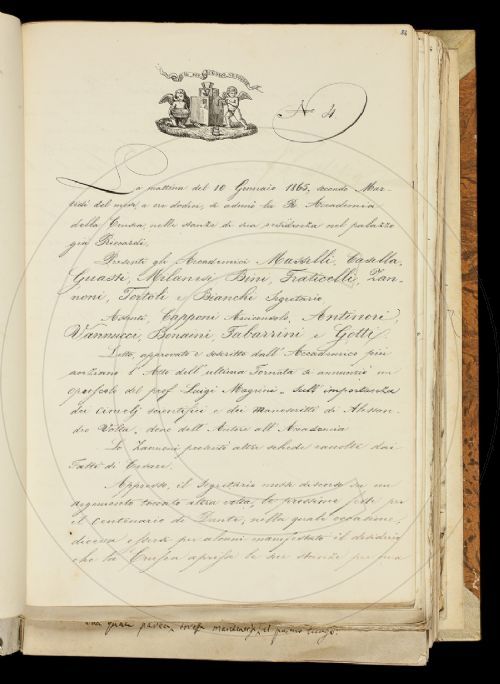 84
No 4
La mattina del 10 Gennaio 1865, secondo Mar-
tedì del mese, a ore dodici, si adunò la R. Accademia
della Crusca nelle stanze di sua residenza nel palazzo
già Riccardi.
Presenti gli Accademici Masselli, Casella,
Guasti, Milanesi, Bini, Fraticelli, Zan-
noni, Tortoli e Bianchi Segretario
Assenti, Capponi Arciconsolo, Antinori,
Vannucci, Bonaini, Tabarrini e Gotti.
Letto, approvato e soscritto dall'Accademico più
anziano l'Atto dell'ultima Tornata si annunziò un
opuscolo del prof. Luigi Magrini - Sull'importanza
dei cimelj scientifici e dei manoscritti di Alessan-
dro Volta, dono dell'Autore all'Accademia
Lo Zannoni presentò altre schede cavate dai
Fatti di Cesare.
Appresso, il Segretario mosse discorso su un
argomento toccato altra volta, le prossime feste per
il Centenario di Dante, nella quale occasione,
diceva essersi per alcuni manifestato il desiderio
che la Crusca aprisse le sue stanze per una